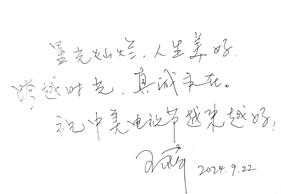 星光灿烂，人生美好.
跨越时光，真诚永在。
祝中美电视节越来越好！
2024.9.22